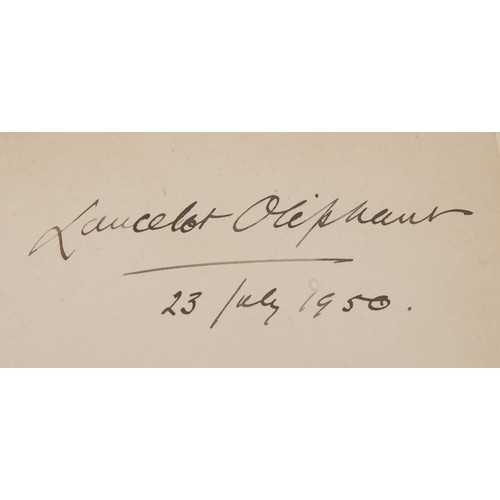 Lancelot Oliphant
23 July 1950.